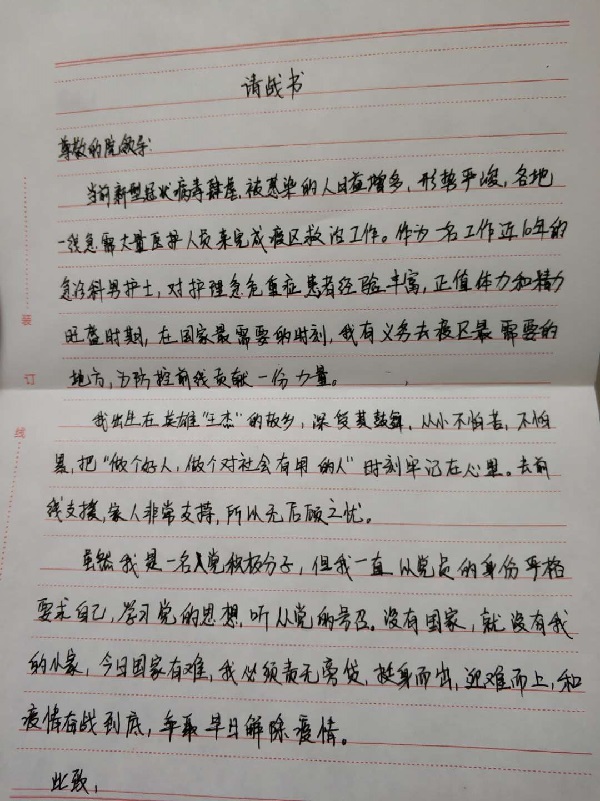 请战书
尊敬的院领导:
当前新型冠状病毒肆虐,被感染的人日益增多,形势严峻,各地
一线急需大量医护人员来完成疫区救治工作。作为一名工作近10年的
急诊科男护士,对护理急危重症患者经验丰富,正值体力和精力
旺盛时期,在国家最需要的时刻,我有义务去疫区最需要的
地方,为防控前线贡献一份力量。
我出生在英雄"王杰"的故乡,深受其鼓舞,从小不怕苦,不怕
累,把"做个好人,做个对社会有用的人"时刻牢记在心里。去前
线支援,家人非常支持,所以无后顾之忧。
虽然我是一名入党积极分子,但我一直以党员的身份严格
要求自己,学习党的思想,听从党的号召。没有国家,就没有我
的小家,今日国家有难,我必须责无旁贷,挺身而出,迎难而上,和
疫情奋战到底,争取早日解除疫情。
此致,
装
订
线